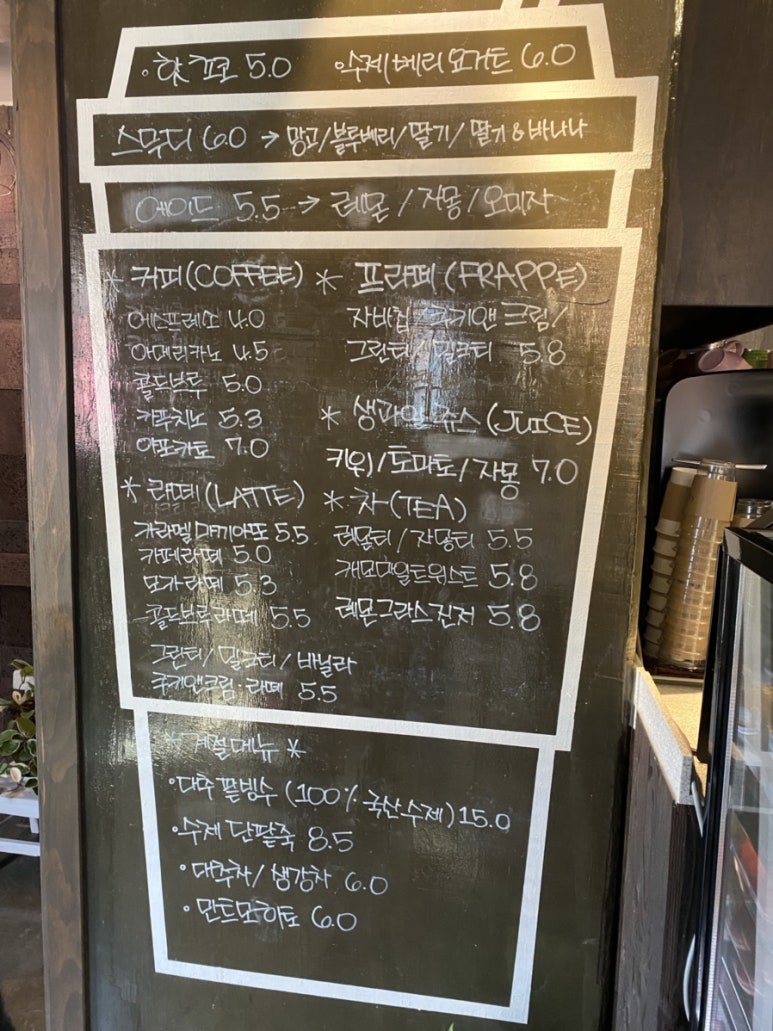 · 핫쵸코 5.0 · 수제베리요거트 6.0
스무디 6.0 → 망고/블루베리/딸기/딸기&바나나
에이드 5.5 → 레몬/자몽/오미자
* 커피(COFFEE)
에스프레소 4.0
아메리카노 4.5
콜드브루 5.0
카푸치노 5.3
아포카토 7.0
* 라떼(LATTE)
카라멜마끼아또 5.5
카페라떼 5.0
모카라떼 5.3
콜드브루라떼 5.5
그린티/밀크티/바닐라
쿠키앤크림·라떼 5.5
* 프라페(FRAPPE)
자바칩/쿠키앤크림/
그린티/밀크티 5.8
* 생과일쥬스(JUICE)
키위/토마토/자몽 7.0
* 차(TEA)
레몬티/자몽티 5.5
캐모마일트위스트 5.8
레몬그라스진저 5.8
* 계절메뉴 *
· 대추팥빙수 (100% 국산수제) 15.0
· 수제 단팥죽 8.5
· 대추차/생강차 6.0
· 민트모히또 6.0